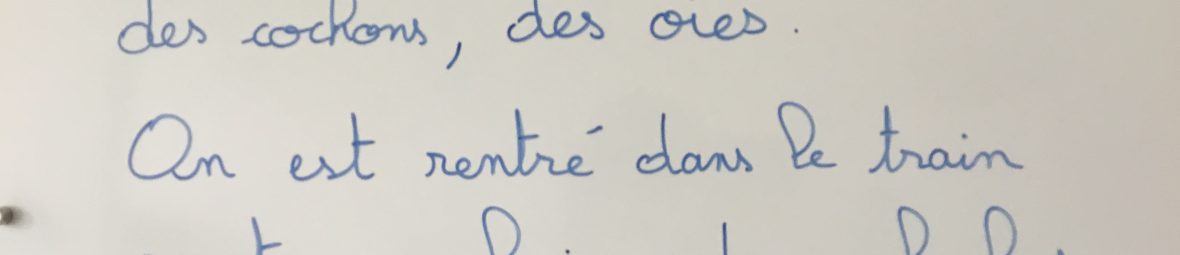 des cochons, des oies.
On est rentré dans le train